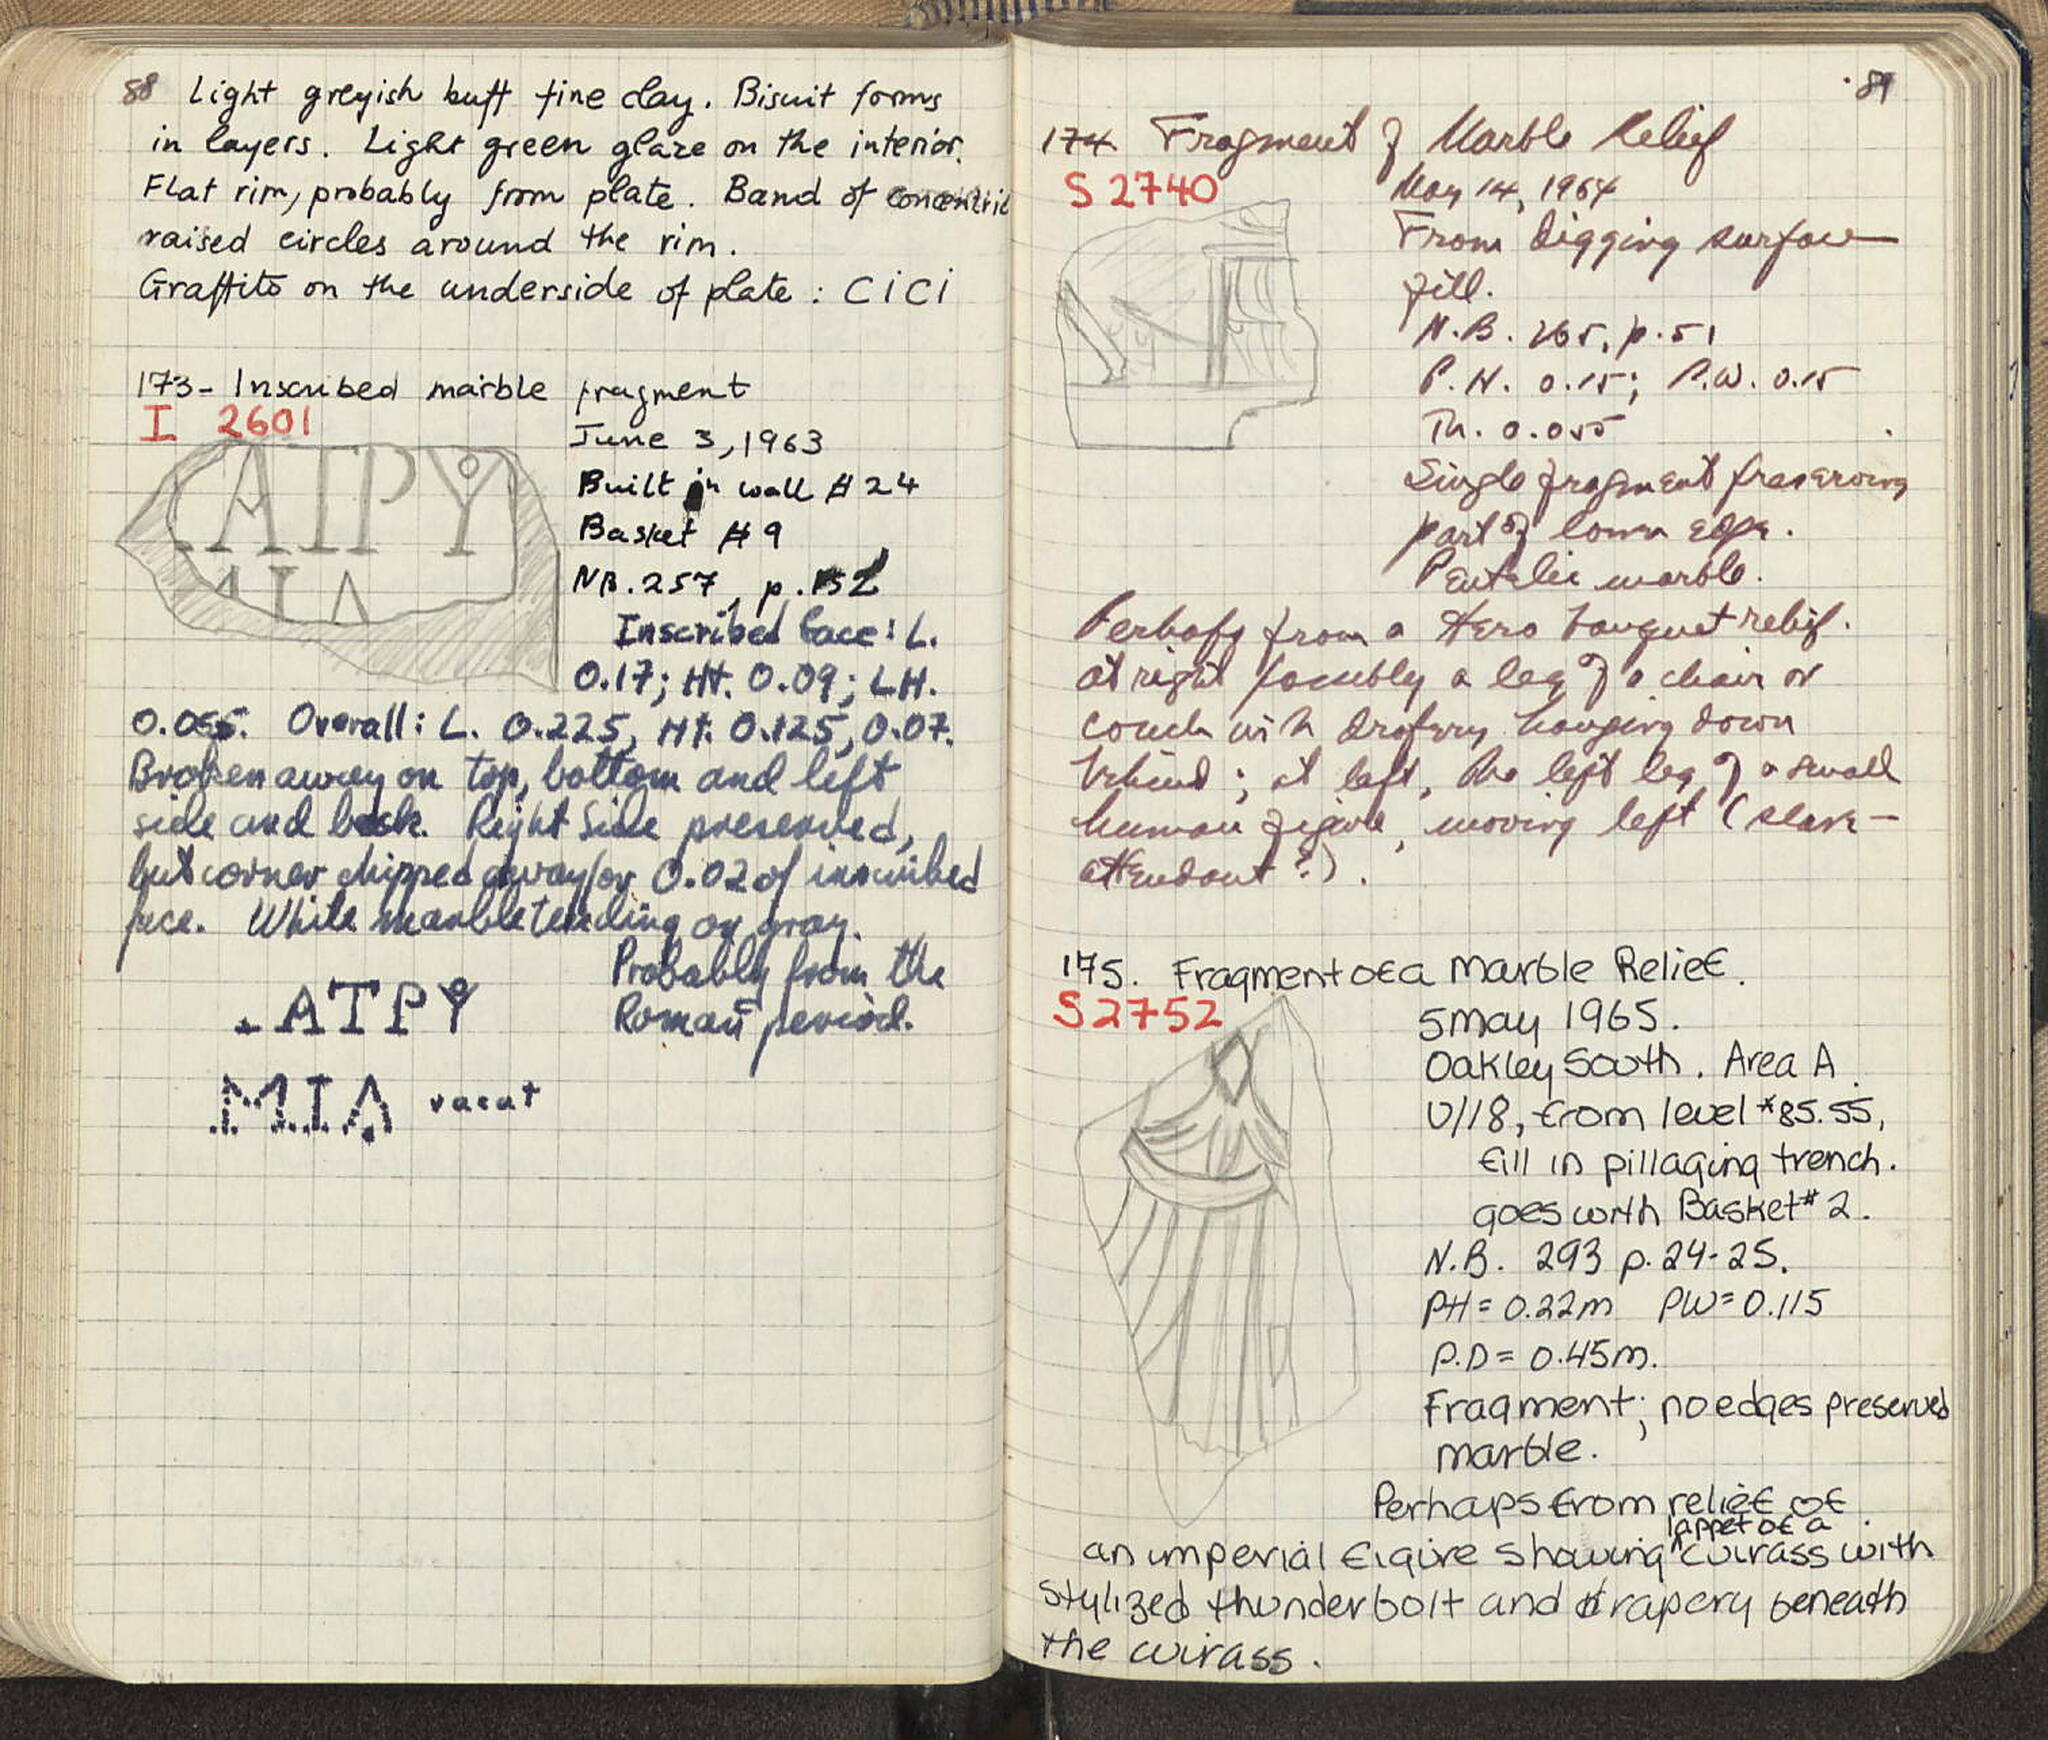 88 Light greyish buff fine clay. Biscuit forms
in layers. Light green glaze on the interior.
Flat rim, probably from plate. Band of concentric
raised circles around the rim.
Graffito on the underside of plate : CiCi
173- Inscribed marble fragment
I 2601
June 3, 1963
Built in wall # 24
Basket # 9
NB. 257, p. 152
Inscribed face: L.
0.17; Ht. 0.09; LH.
0.055. Overall: L. 0.225, Ht. 0.125, 0.07.
Broken away on top, bottom and left
side and back. Right Side preserved,
but corner chipped away for 0.02 of inscribed
face. White marble tending on gray.
Probably from the
Roman period.
ATPY
ΛΙΔ
.ATPY
MIΔ vacat
89
174. Fragment of Marble Relief
S 2740
May 14, 1964
From digging surface
fill.
N.B. 265, p. 51
P.H. 0.15; P.W. 0.15
Th. 0.055
Single fragment preserving
part of lower edge.
Pentelic marble.
Perhaps from a Hero banquet relief.
At right possibly a leg of a chair or
couch with drapery hanging down
behind; at left, the left leg of a small
human figure, moving left (slave-
attendant?).
175. Fragment of a Marble Relief.
S 2752
5 May 1965.
Oakley South. Area A.
U/18, from level *85.55,
fill in pillaging trench.
goes with Basket # 2.
N.B. 293 p. 24-25.
PH = 0.22m PW = 0.115
P.D = 0.45m.
Fragment; no edges preserved
marble.
Perhaps from relief of
an imperial figure showing ^lappet of a cuirass with
stylized thunderbolt and drapery beneath
the cuirass.